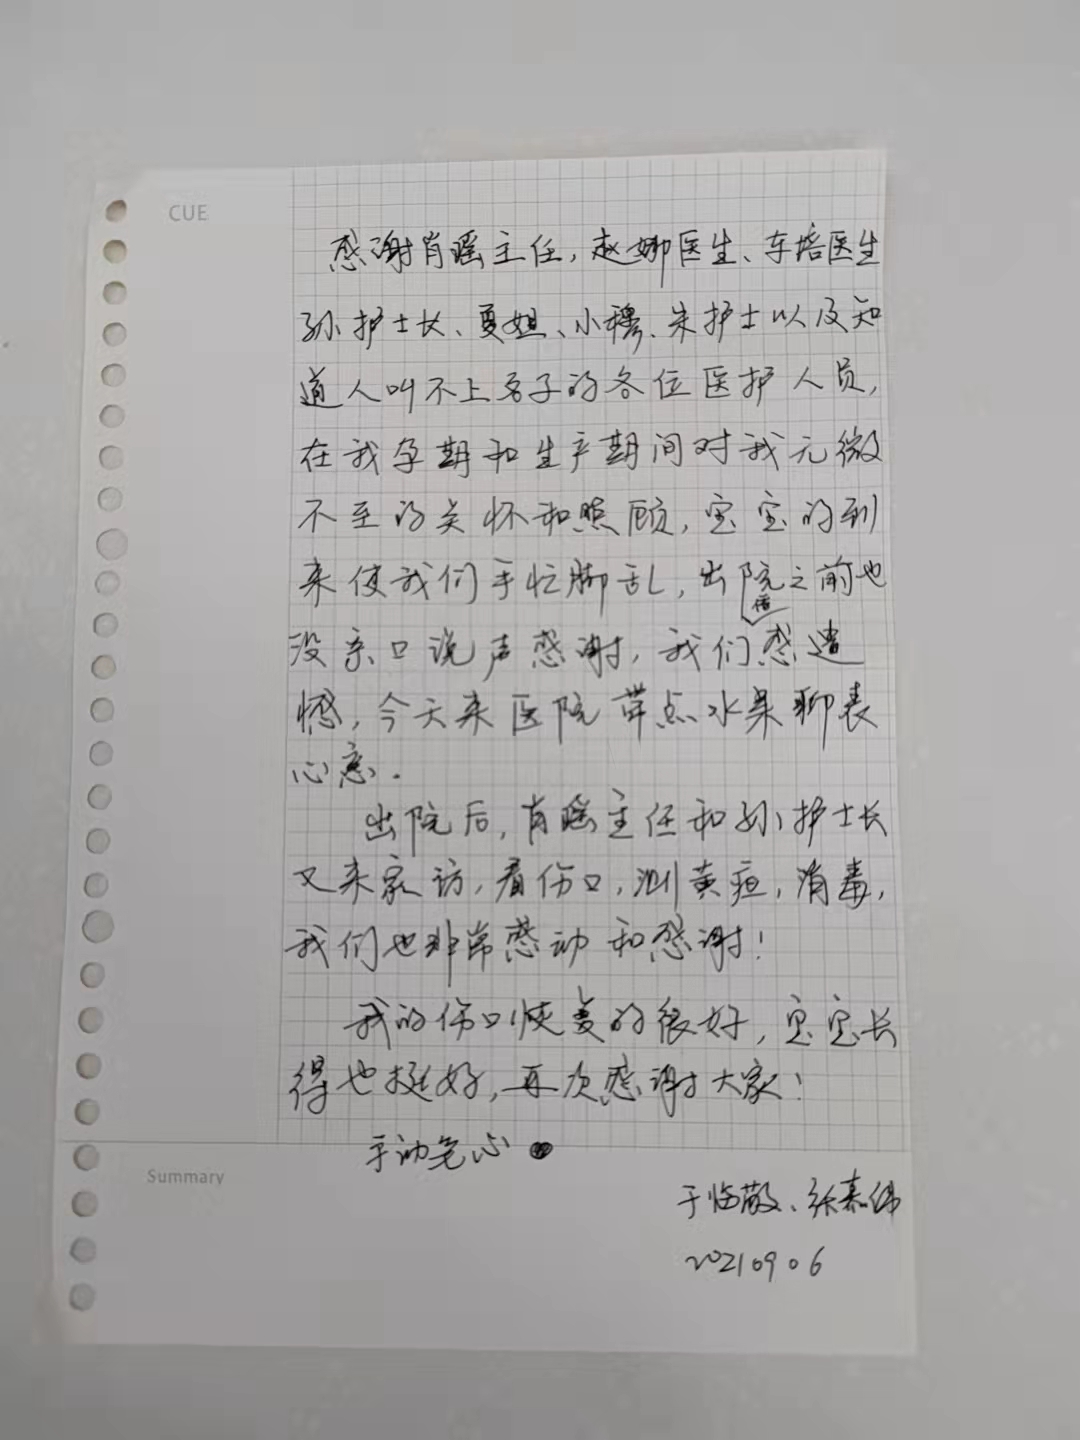 CUE
感谢肖瑶主任，赵娜医生、车培医生
孙护士长、夏姐、小穆、朱护士以及知
道人叫不上名子的各位医护人员，
在我孕期和生产期间对我无微
不至的关怀和照顾，宝宝的到
来使我们手忙脚乱，出院之前也
没亲口说声感谢，我们感遗
憾，今天来医院带点水果聊表
心意.
出院后，肖瑶主任和孙护士长
又来家访，看伤口，测黄疸，消毒，
我们也非常感动和感谢！
我的伤口恢复的很好，宝宝长
得也挺好，再次感谢大家！
手动笔心
Summary
于临敬、张嘉伟
20210906